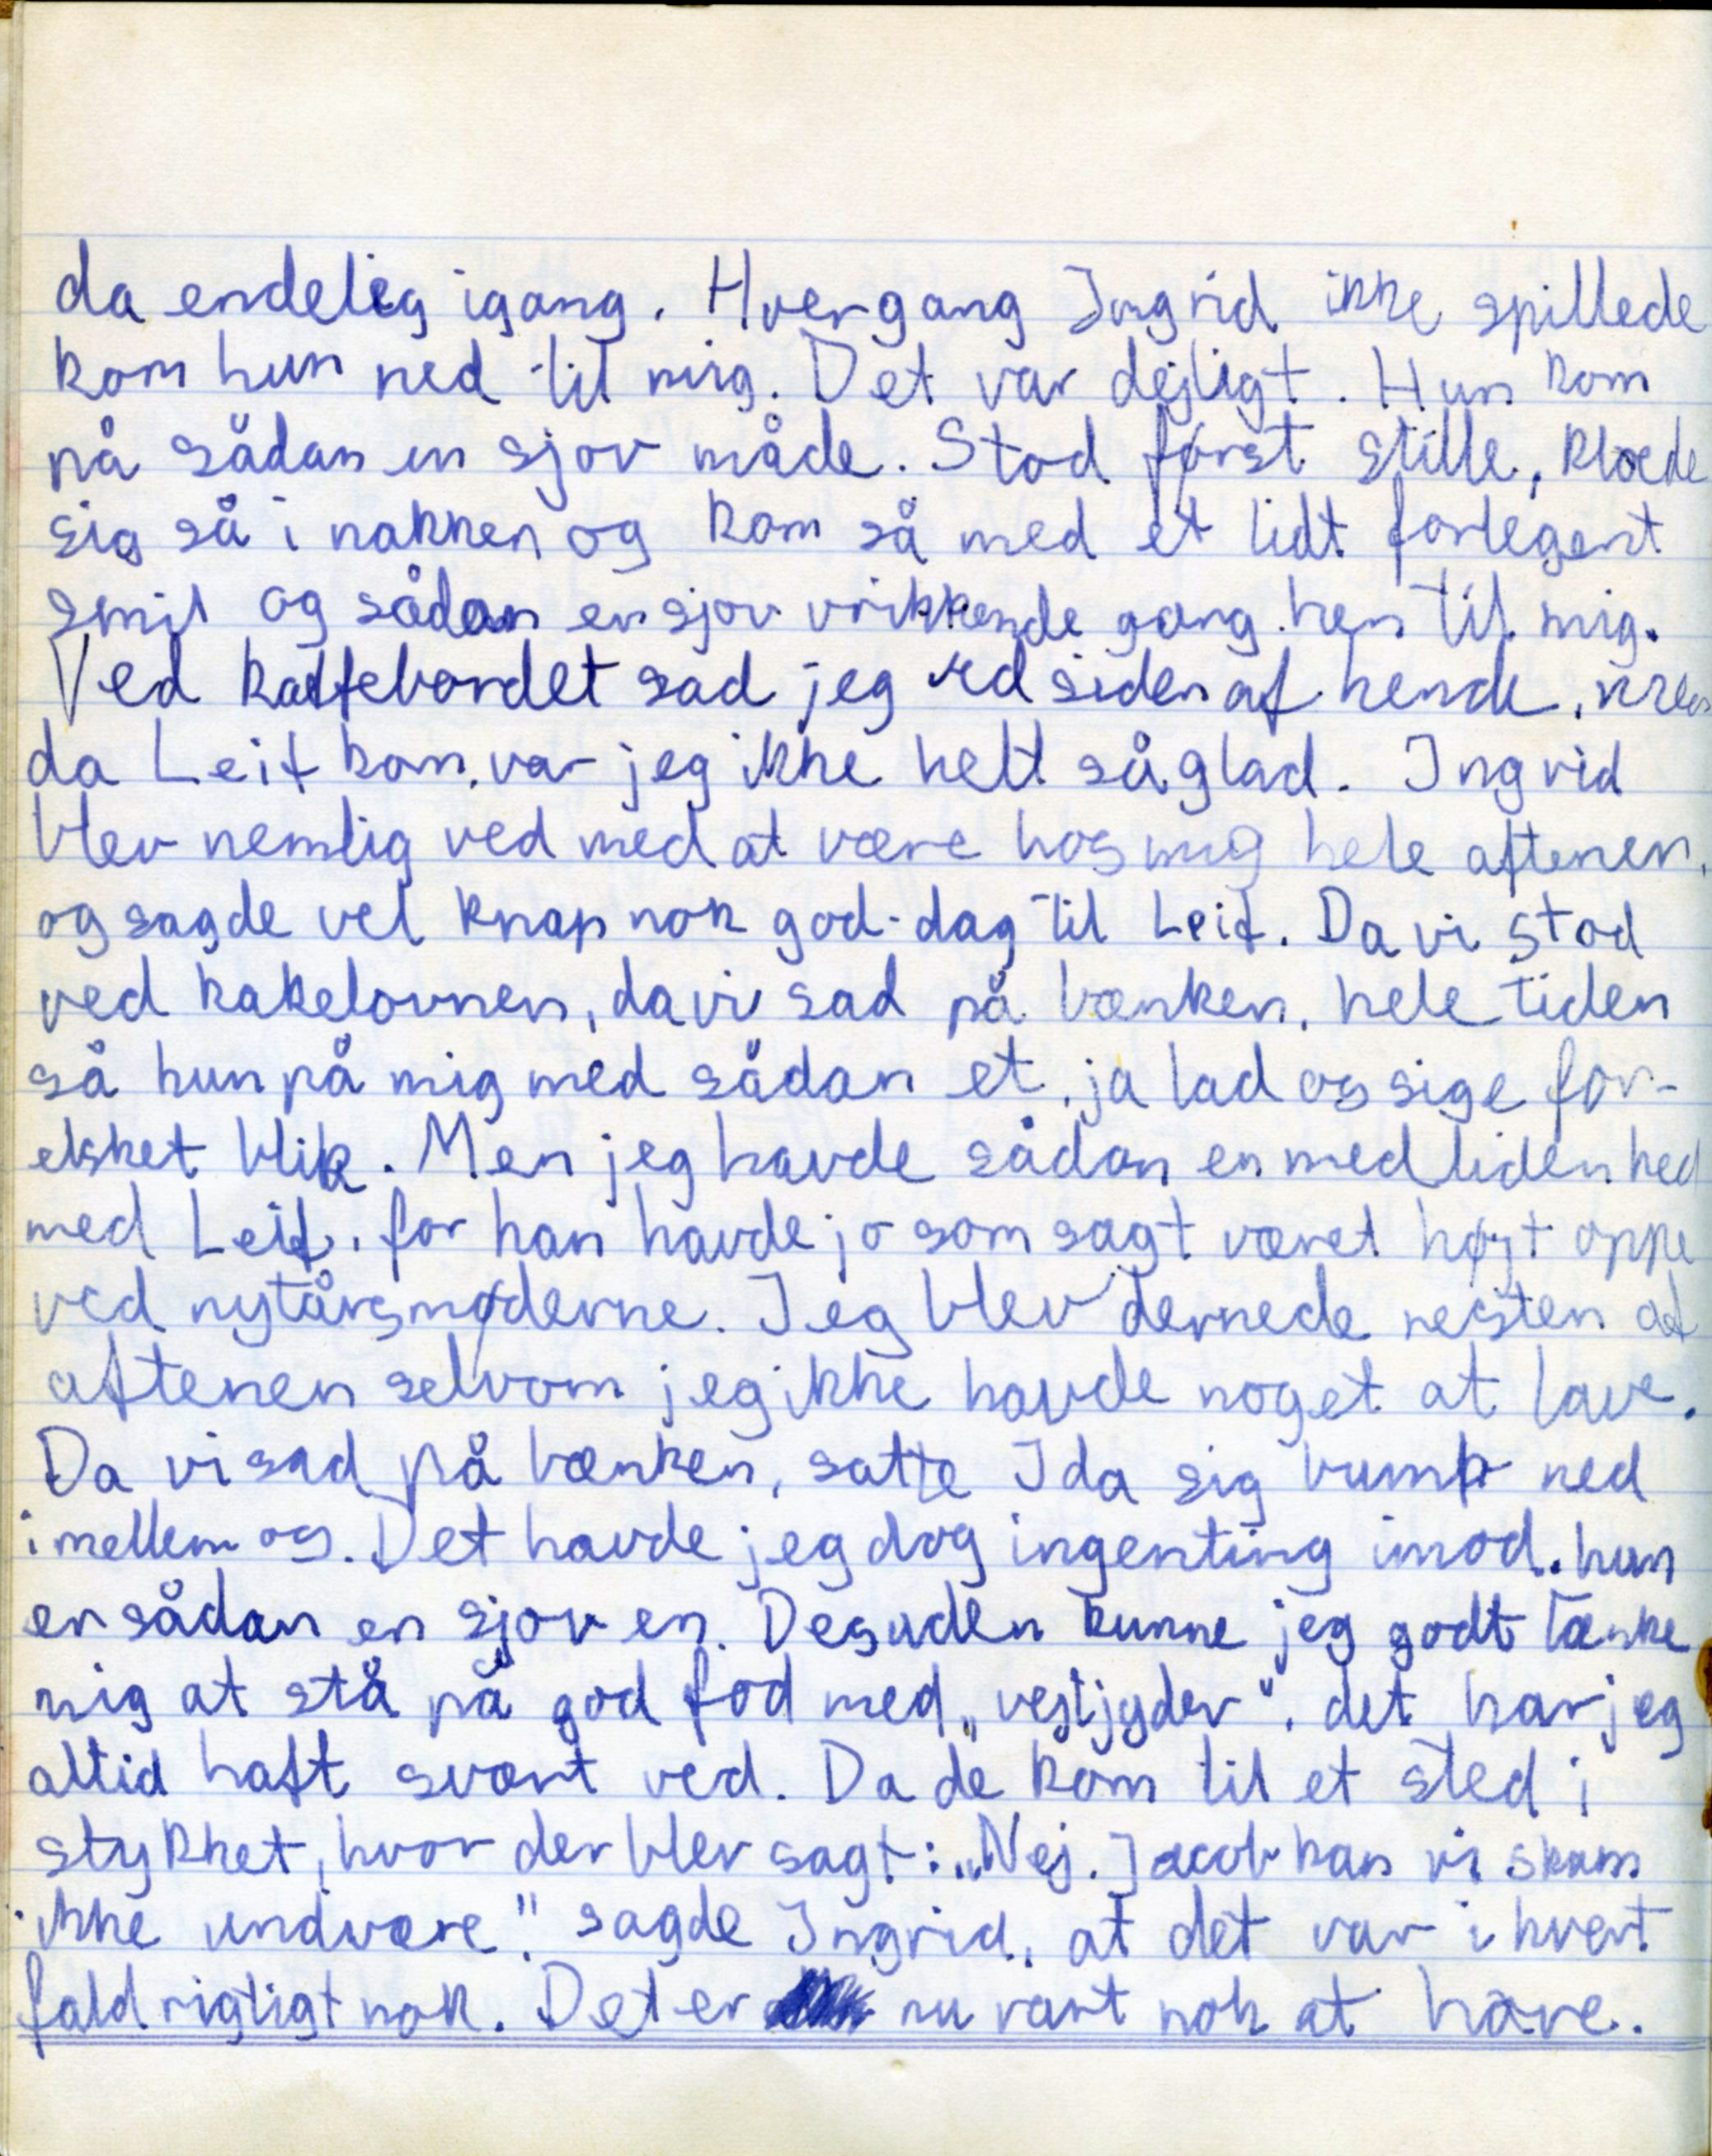 da endelig igang. Hvergang Ingrid ikke spillede
kom hun ned til mig. Det var dejligt. Hun kom
på sådan en sjov måde. Stod først stille, kløede
sig så i nakken og kom så med et lidt forlegent
smil og sådan en sjov vrikkende gang hen til mig.
Ved kaffebordet sad jeg ved siden af hende,
da Leif kom, var jeg ikke helt så glad. Ingrid
blev nemlig ved med at være hos mig hele aftenen,
og sagde vel knap nok god-dag til Leif. Da vi stod
ved kakelovnen, da vi sad på bænken, hele tiden
så hun på mig med sådan et, ja lad os sige for-
elsket blik. Men jeg havde sådan en medlidenhed
med Leif, for han havde jo som sagt været højt oppe
ved nytårsmøderne. Jeg blev dernede resten af
aftenen selvom jeg ikke havde noget at lave.
Da vi sad på bænken, satte Ida sig bump ned
imellem os. Det havde jeg dog ingenting imod. hun
er sådan en sjov en. Desuden kunne jeg godt tænke
mig at stå på god fod med „vestjyder“. det har jeg
altid haft svært ved. Da de kom til et sted i
stykket, hvor der blev sagt: „Nej. Jacob kan vi skam
ikke undvære“. sagde Ingrid, at det var i hvert
fald rigtigt nok. Det er nu rart nok at høre.